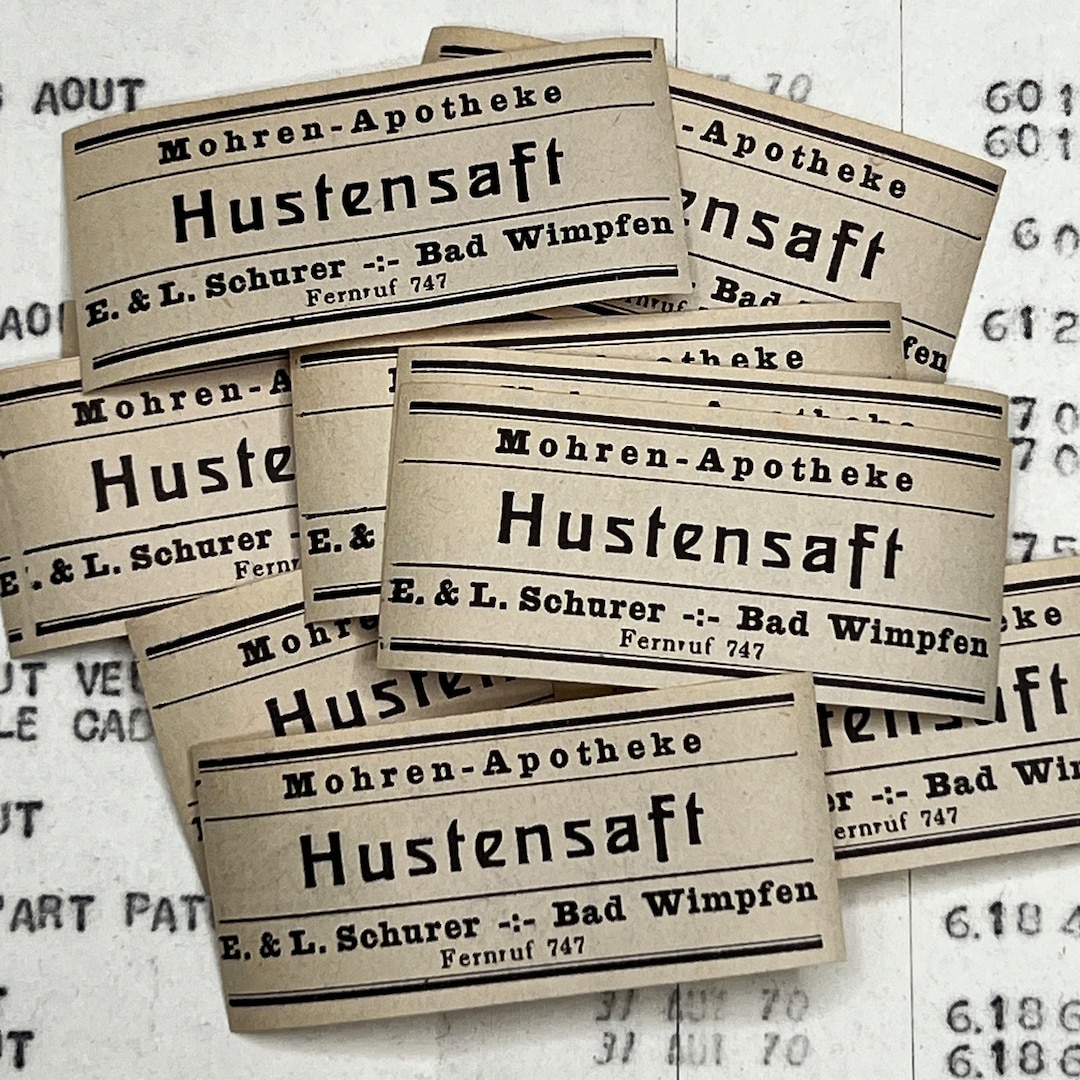 AOUT
70
601
601
60
612
Mohren-Apotheke
Hustensaft
E. & L. Schurer -:- Bad Wimpfen
Fernruf 747
-Apotheke
ensaft
Bad
fen
Mohren-A
Huste
E. & L. Schurer -
Fern
E. &
otheke
70
70
75
Mohren-Apotheke
Hustensaft
E. & L. Schurer -:- Bad Wimpfen
Fernruf 747
Mohre
Husten
eke
tensaft
er -:- Bad Wim
ernruf 747
UT VEU
LE CAD
UT
'ART PAT
Mohren-Apotheke
Hustensaft
E. & L. Schurer -:- Bad Wimpfen
Fernruf 747
6.184
31 AUT 70
6.186
31 AUT 70
6.186